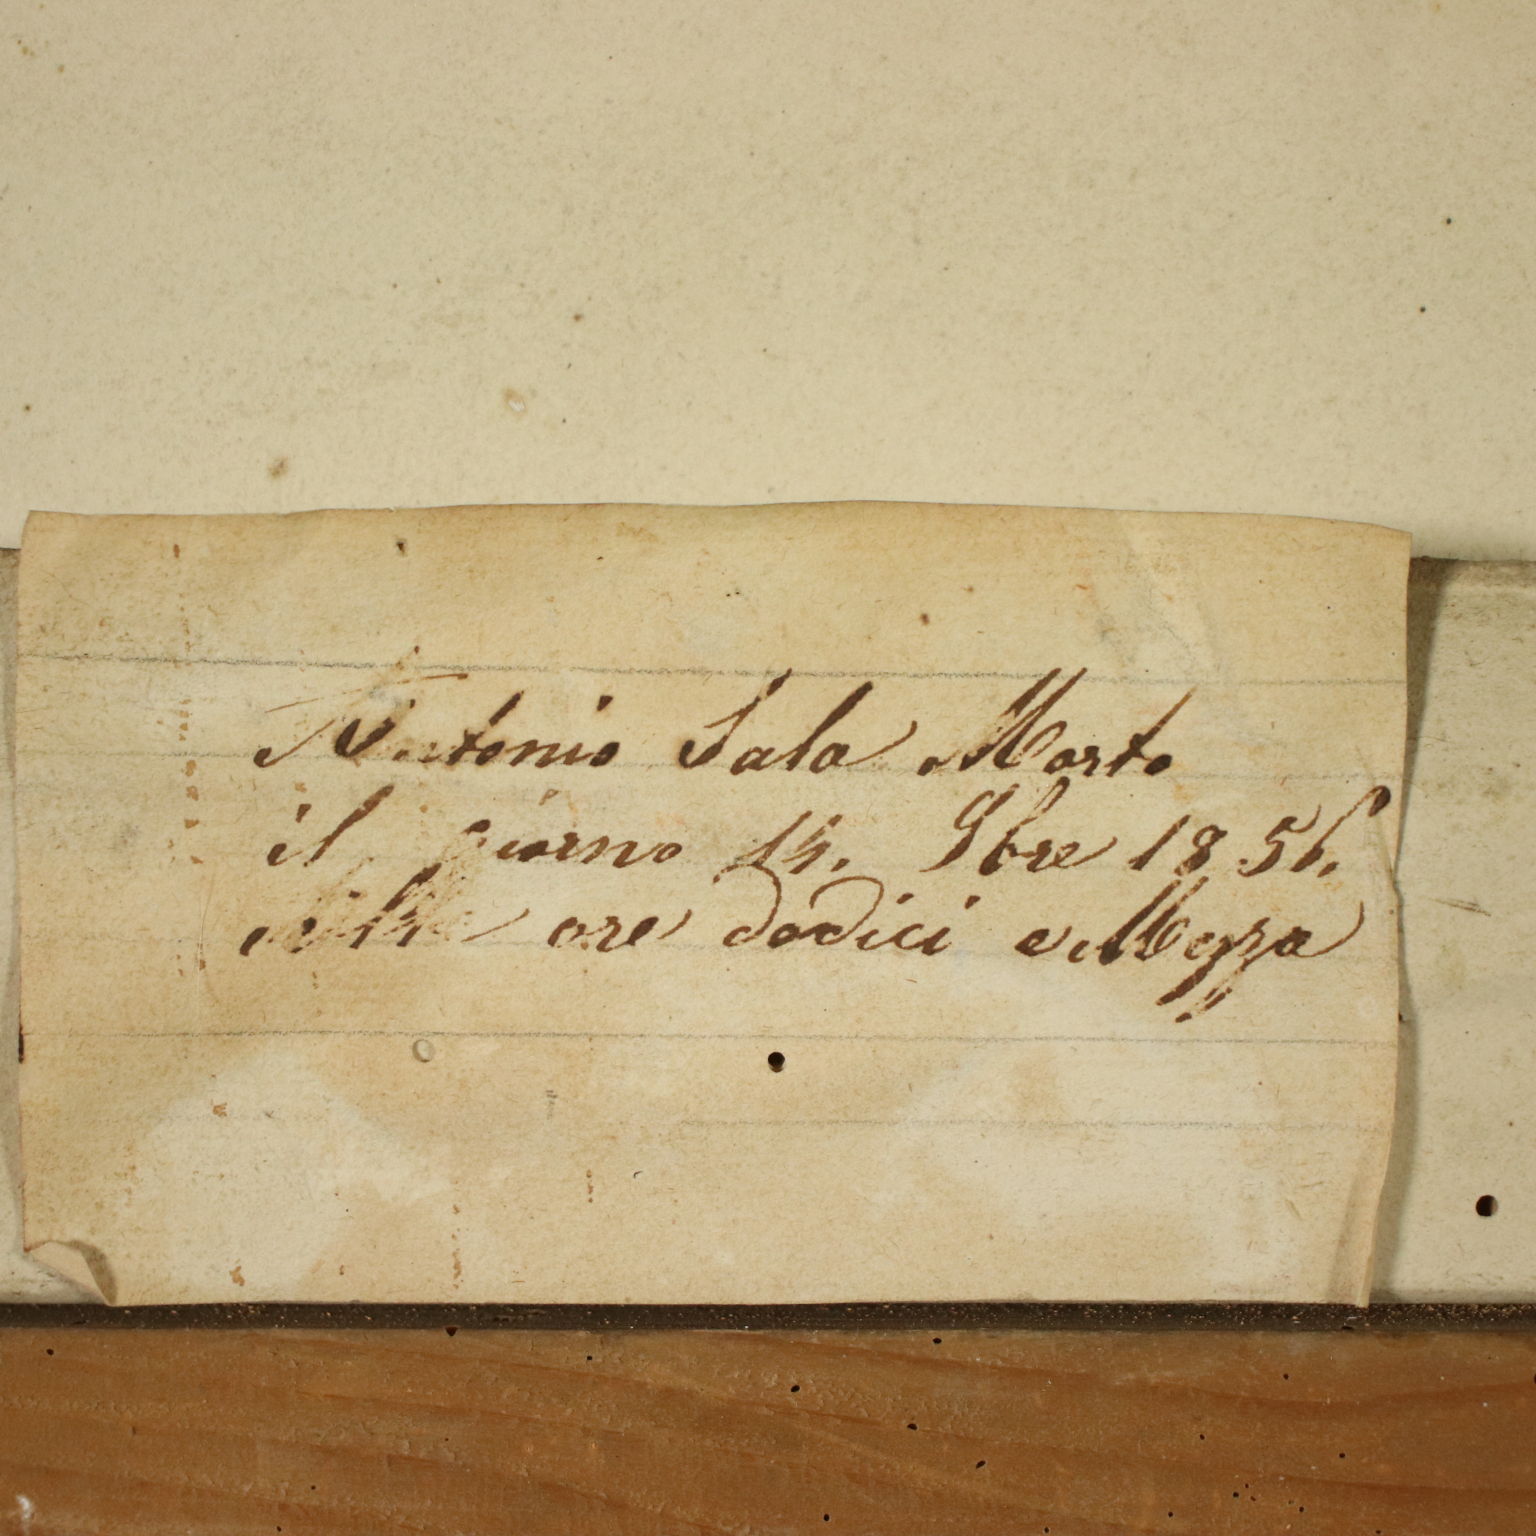 Antonio Sala Morto
il giorno 14. 9bre 1856.
alle ore dodici e Mezza